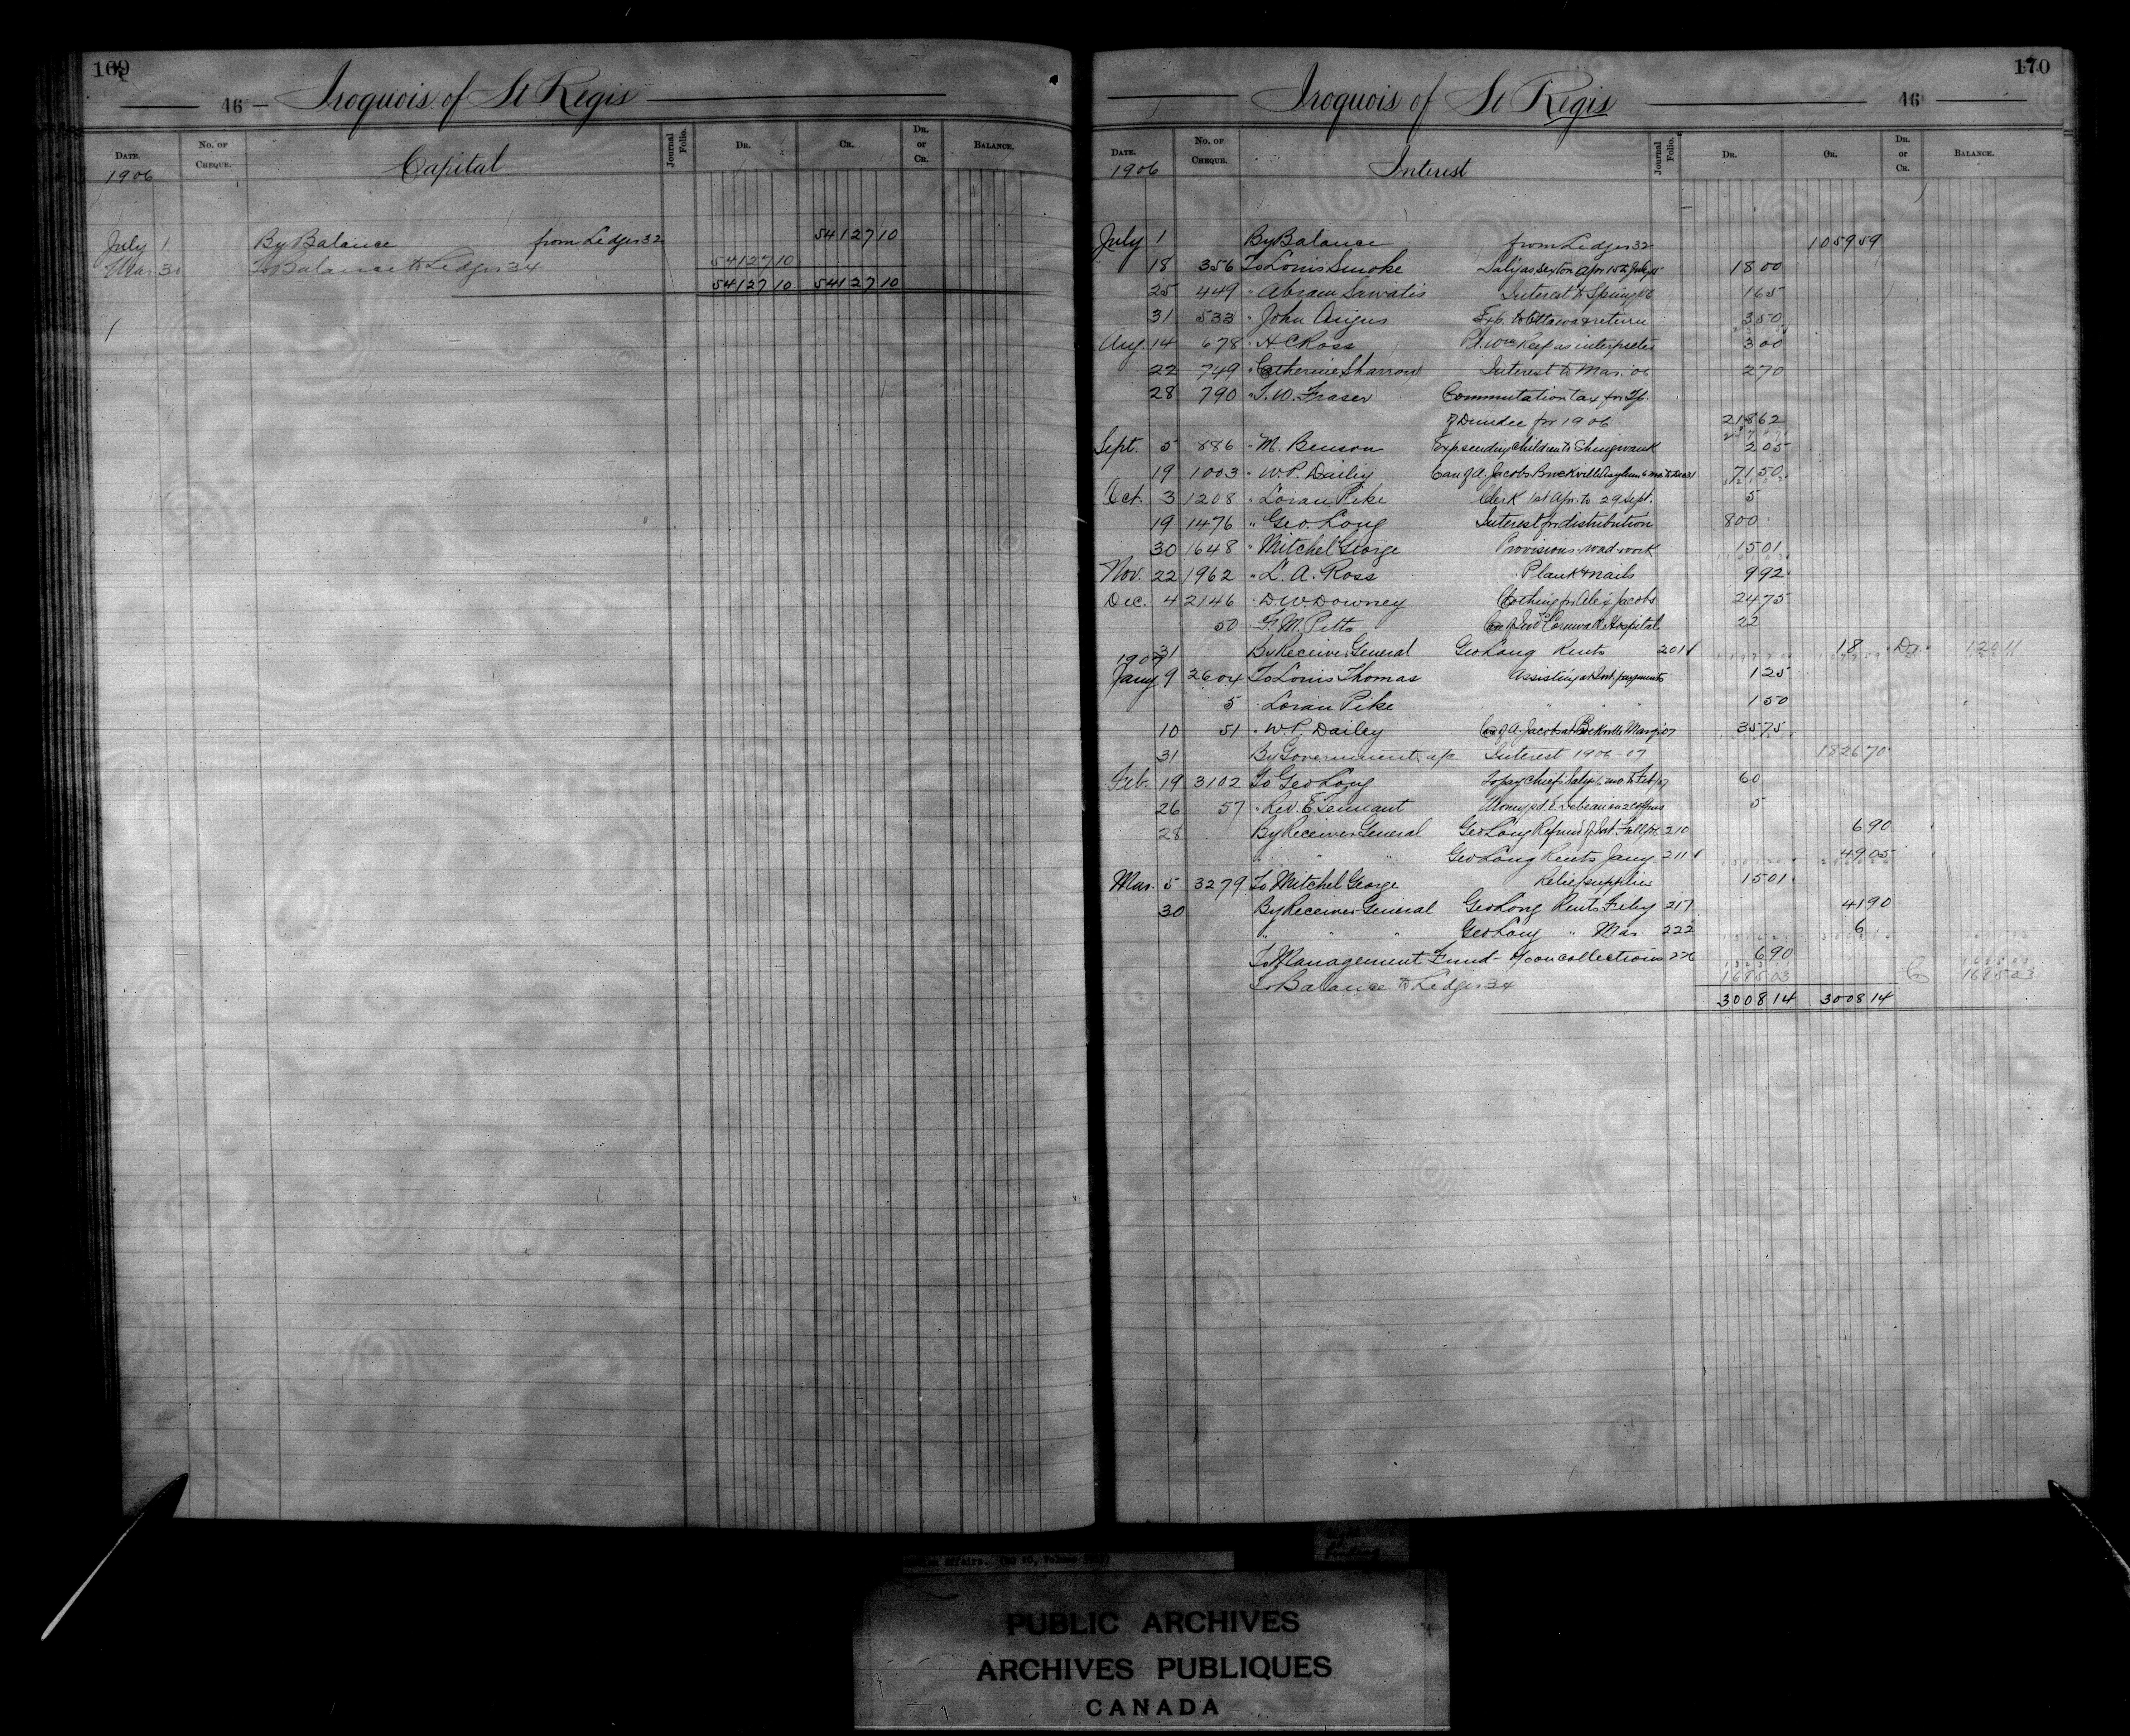 169
46 - Iroquois of St Regis
DATE. No. OF CHEQUE. Capital Journal Folio. DR. CR. DR. or CR. BALANCE.
1906
July 1 By Balance from Ledger 32 54127 10
Mar 31 To Balance to Ledger 34 54127 10
54127 10 54127 10
170
Iroquois of St Regis 46
DATE. No. OF CHEQUE. Interest Journal Folio. DR. CR. DR. or CR. BALANCE.
1906
July 1 By Balance from Ledger 32 1059 59
18 356 To Louis Smoke Sal'y as Sexton Apr 15 to July 15 18 00
25 449 " Abram Sawatis Interest to Spring 06 1 65
31 533 " John Angus Exp. to Ottawa & return 3 50
Aug. 14 678 " A C Ross Pd. Wm Reif as interpreter 3 00
22 749 " Catherine Sharrow Interest to Mar. 06 2 70
28 790 " J. W. Fraser Commutation tax for Tp.
of Dundee for 1906 218 62
Sept. 5 886 " M. Benson Exp. sending children to Shingwauk 2 05
19 1003 " W. P. Dailey Care of A. Jacobs Brockville Asylum 6 mo. to 71 50
Oct. 3 1208 " Loran Pike Clerk 1st Apr. to 29 Sept. 5
19 1476 " Geo. Long Interest for distribution 800
30 1648 " Mitchel George Provisions road work 15 01
Nov. 22 1962 " L. A. Ross Plank & nails 9 92
Dec. 4 2146 " D. W. Downey Clothing for Alex Jacobs 24 75
50 " G. M. Pitts Cornwall Hospital 22
31 By Receiver General Geo Long Rents 201 18 Dr. 120 11
1907
Jany 9 2604 To Louis Thomas Assisting at Int. payments 1 25
5 " Loran Pike " " " 1 50
10 51 " W. P. Dailey Care of A. Jacobs at 35 75
31 By Government a/c Interest 1906-07 1826 70
Feb. 19 3102 To Geo Long To pay Chiefs Sal'y 6 mo. to Feb/07 60
26 57 " Rev. E. Tennant Money pd. E. Debeau on 2 coffins 5
28 By Receiver General Geo Long Refund of Int. Fall 06 210 6 90
" " " Geo Long Rents Jany 211 49 05
Mar. 5 3279 To Mitchel George Relief supplies 15 01
30 By Receiver General Geo Long Rents Feby 217 41 90
" " " Geo Long " Mar. 222 6
To Management Fund - % on collections 226 6 90
To Balance to Ledger 34 1685 03 Cr 1685 03
3008 14 3008 14
Affairs. (RG 10, Volume
PUBLIC ARCHIVES
ARCHIVES PUBLIQUES
CANADA